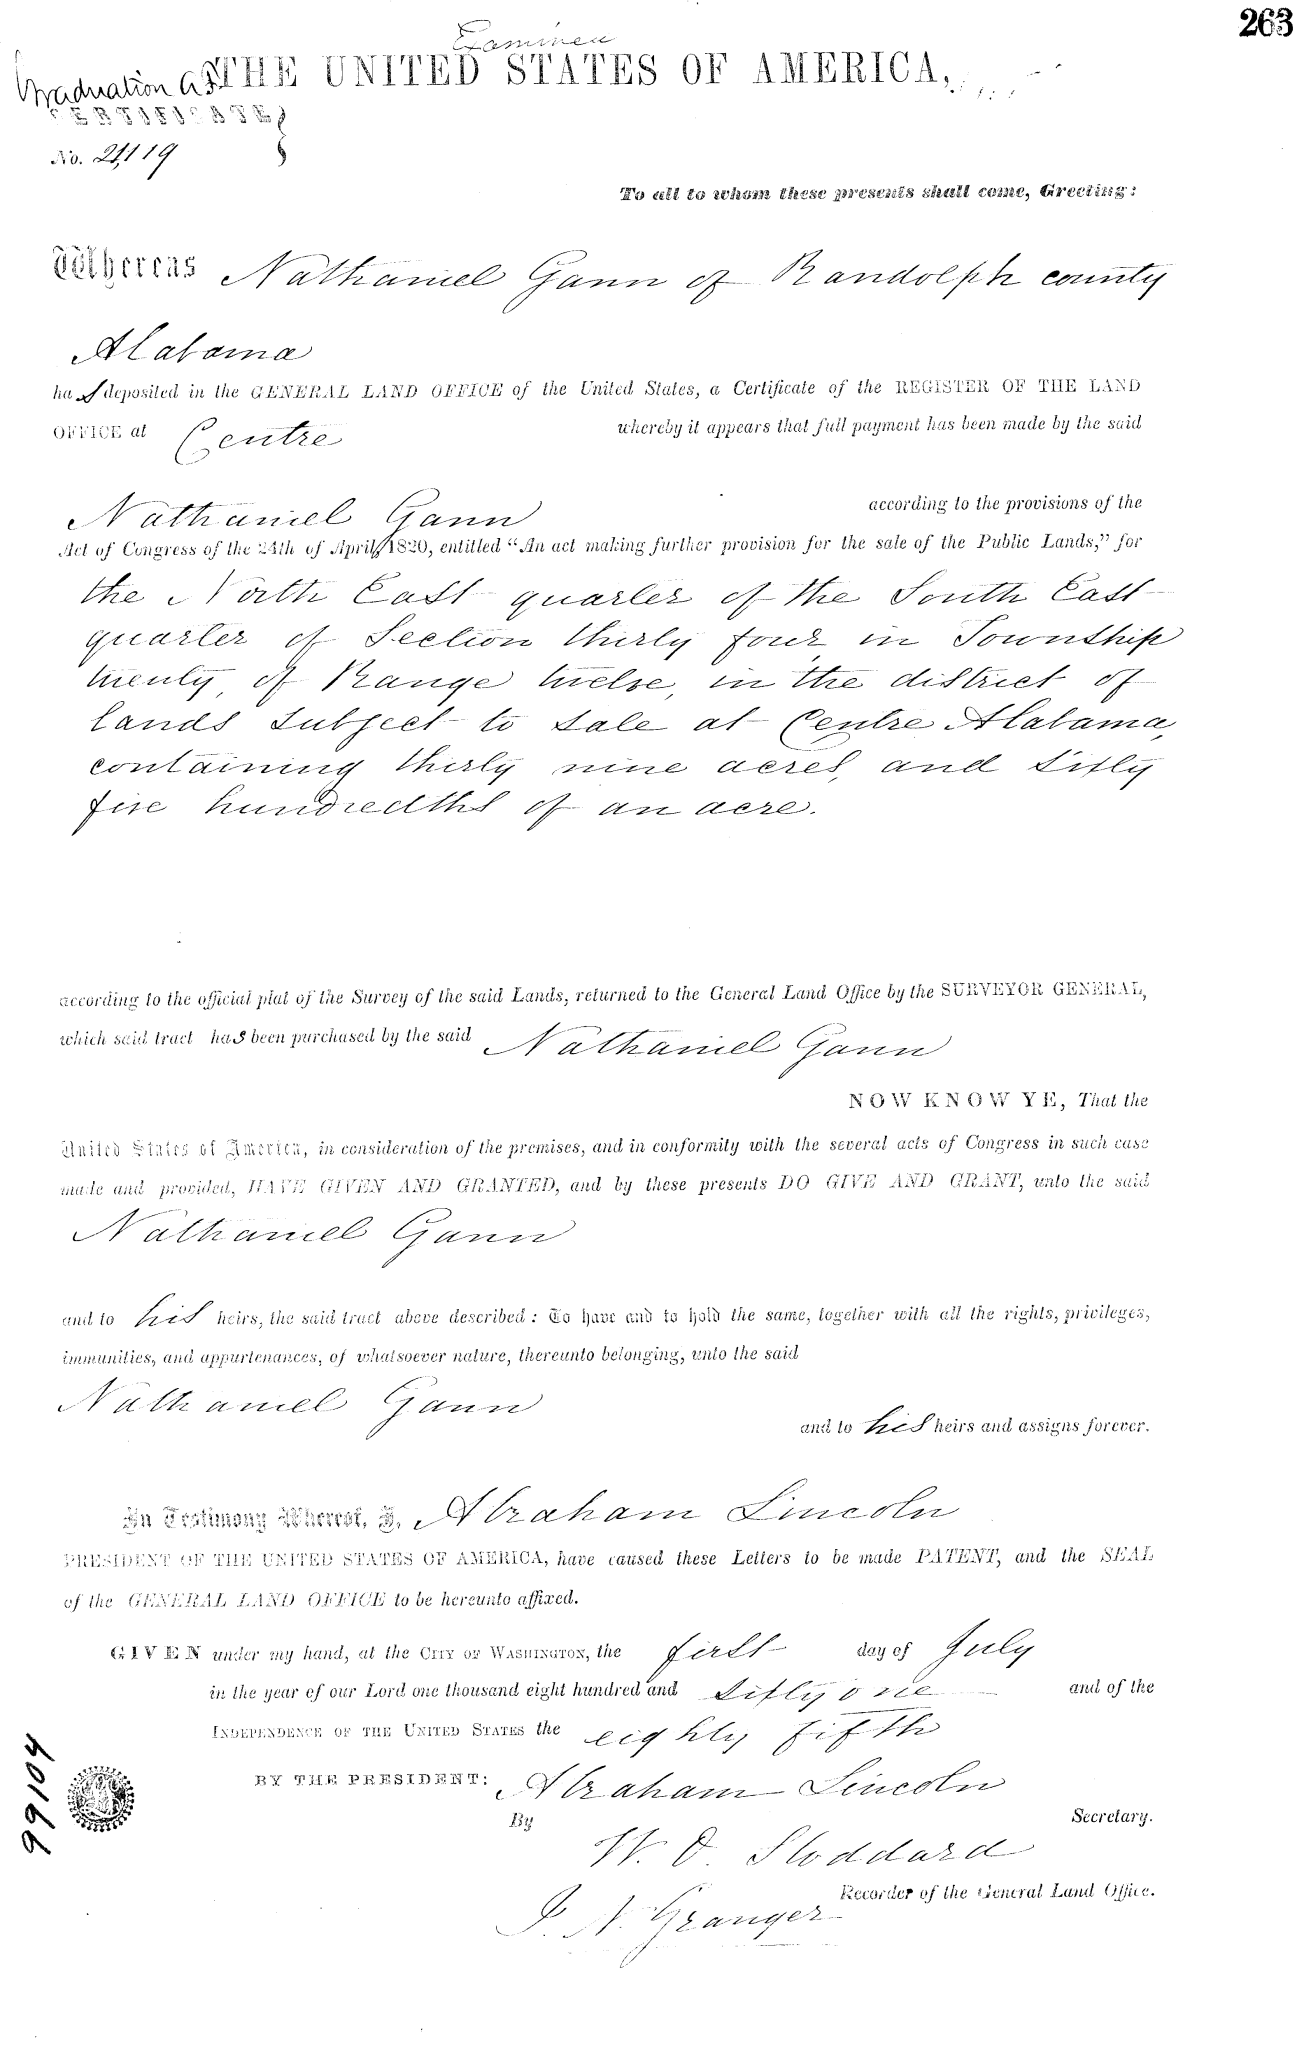 263
Examined
Graduation Act
THE UNITED STATES OF AMERICA,
CERTIFICATE
No. 21,119
To all to whom these presents shall come, Greeting:
Whereas Nathaniel Gann of Randolph county
Alabama
has deposited in the GENERAL LAND OFFICE of the United States, a Certificate of the REGISTER OF THE LAND
OFFICE at Centre whereby it appears that full payment has been made by the said
Nathaniel Gann according to the provisions of the
Act of Congress of the 24th of April, 1820, entitled "An act making further provision for the sale of the Public Lands," for
the North East quarter of the South East
quarter of Section thirty four, in Township
twenty, of Range twelve, in the district of
lands subject to sale at Centre Alabama,
containing thirty nine acres, and sixty
five hundredths of an acre.
according to the official plat of the Survey of the said Lands, returned to the General Land Office by the SURVEYOR GENERAL,
which said tract has been purchased by the said Nathaniel Gann
NOW KNOW YE, That the
United States of America, in consideration of the premises, and in conformity with the several acts of Congress in such case
made and provided, HAVE GIVEN AND GRANTED, and by these presents DO GIVE AND GRANT, unto the said
Nathaniel Gann
and to his heirs, the said tract above described: To have and to hold the same, together with all the rights, privileges,
immunities, and appurtenances, of whatsoever nature, thereunto belonging, unto the said
Nathaniel Gann
and to his heirs and assigns forever.
In Testimony Whereof, I, Abraham Lincoln
PRESIDENT OF THE UNITED STATES OF AMERICA, have caused these Letters to be made PATENT, and the SEAL
of the GENERAL LAND OFFICE to be hereunto affixed.
GIVEN under my hand, at the CITY OF WASHINGTON, the first day of July
in the year of our Lord one thousand eight hundred and sixty one and of the
INDEPENDENCE OF THE UNITED STATES the eighty fifth
BY THE PRESIDENT: Abraham Lincoln
By W. O. Stoddard Secretary.
J. N. Granger Recorder of the General Land Office.
99104